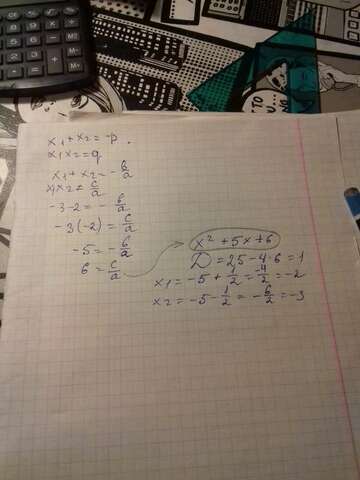 x₁ + x₂ = -p.
x₁x₂ = q
x₁ + x₂ = -b/a
x₁x₂ = c/a
-3-2 = -b/a
-3(-2) = c/a
-5 = -b/a
6 = c/a
x² + 5x + 6
D = 25 - 4·6 = 1
x₁ = -5 + 1/2 = -4/2 = -2
x₂ = -5 - 1/2 = -6/2 = -3